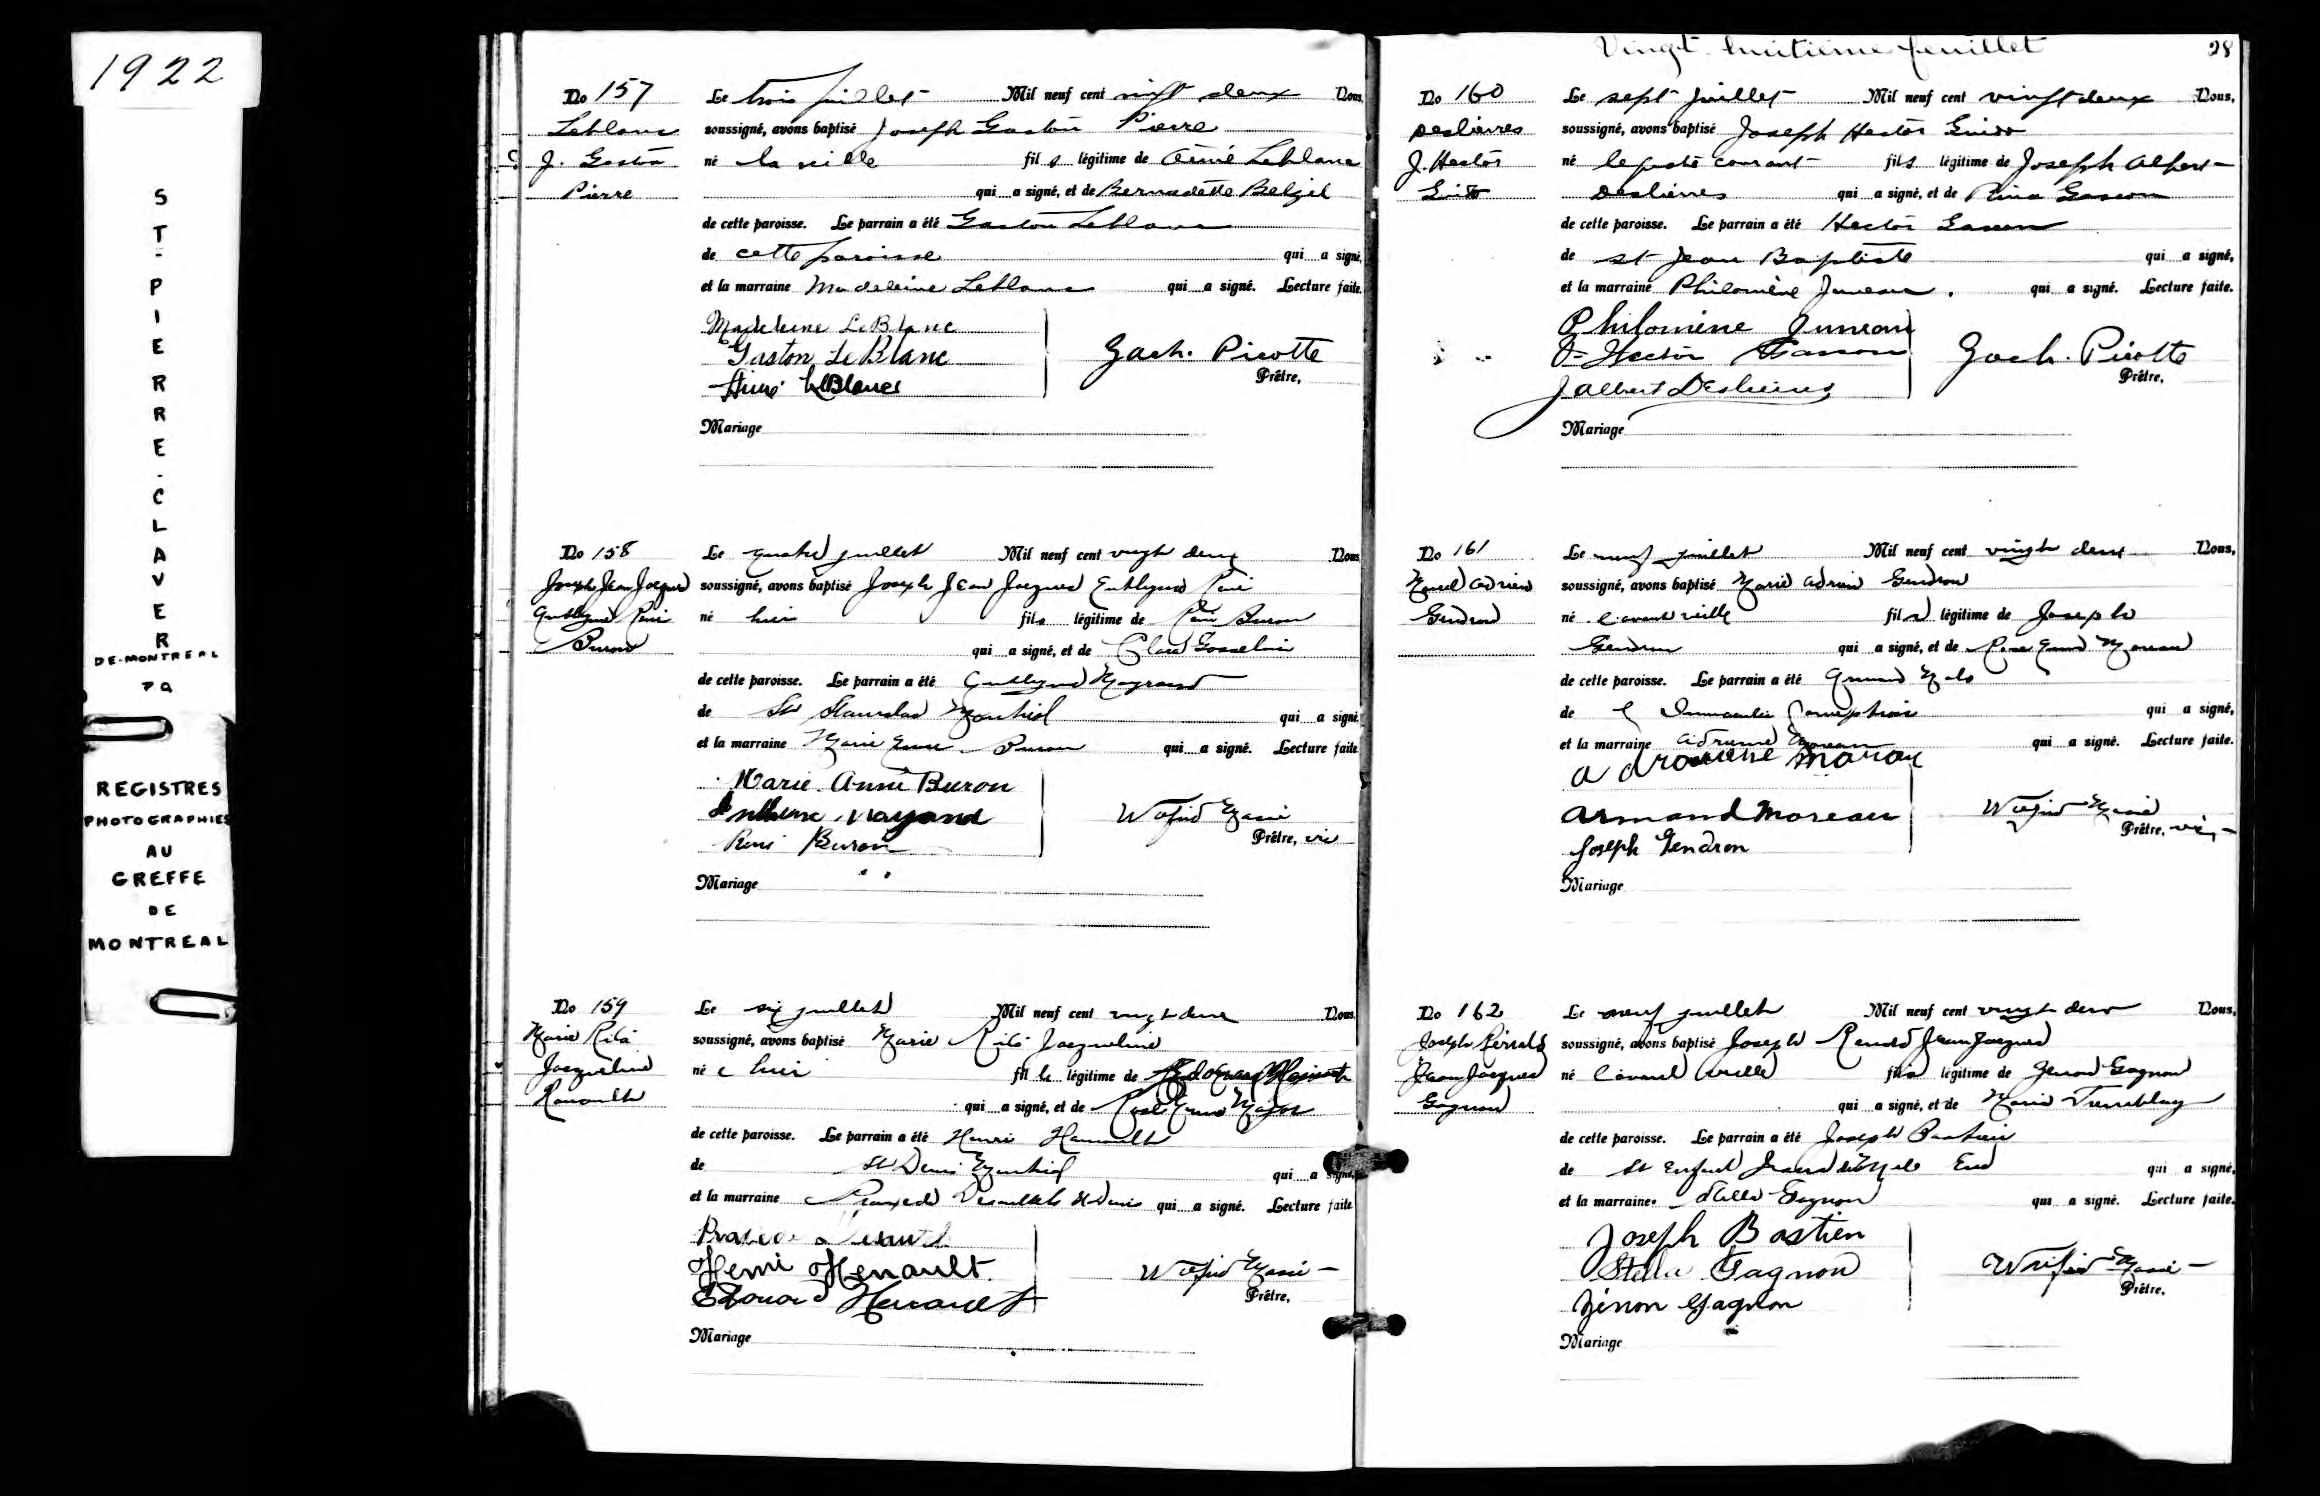 1922
ST-PIERRE-CLAVER
DE-MONTREAL
PQ
REGISTRES
PHOTOGRAPHIES
AU
GREFFE
DE
MONTREAL
No 157
Leblanc
J. Gaston
Pierre
Le trois juillet Mil neuf cent vingt deux Nous,
soussigné, avons baptisé Joseph Gaston Pierre
né la veille fils légitime de Aimé Leblanc
qui a signé, et de Bernadette Belzil
de cette paroisse. Le parrain a été Gaston Leblanc
de cette paroisse qui a signé,
et la marraine Madeleine Leblanc qui a signé. Lecture faite.
Madeleine LeBlanc
Gaston LeBlanc
Aimé LeBlanc
Zach. Picotte
Prêtre,
Mariage
No 158
Joseph Jean Jacques
René
Buron
Le quatre juillet Mil neuf cent vingt deux Nous
soussigné, avons baptisé Joseph Jean Jacques René
né hier fils légitime de René Buron
qui a signé, et de Clara Gosselin
de cette paroisse. Le parrain a été
de St Stanislas Montréal qui a signé
et la marraine Marie Anne Buron qui a signé. Lecture faite
Marie Anne Buron
René Buron
Wilfrid Massé
Prêtre, vic
Mariage
No 159
Marie Rita
Jacqueline
Le six juillet Mil neuf cent vingt deux Nous
soussigné, avons baptisé Marie Rita Jacqueline
née hier fille légitime de Edouard Henault
qui a signé, et de Rose Anna Major
de cette paroisse. Le parrain a été Henri Henault
de St Denis Montréal qui a signé,
et la marraine St Denis qui a signé. Lecture faite
Henri Henault
Edouard Henault
Wilfrid Massé
Prêtre,
Mariage
Vingt-huitième feuillet 28
No 160
Deslières
J. Hector
Guido
Le sept juillet Mil neuf cent vingt deux Nous,
soussigné, avons baptisé Joseph Hector Guido
né le quatre courant fils légitime de Joseph Albert
Deslières qui a signé, et de Rina Gascon
de cette paroisse. Le parrain a été Hector Gascon
de St Jean Baptiste qui a signé,
et la marraine Philomène Juneau. qui a signé. Lecture faite.
Philomène Juneau
J-Hector Gascon
J Albert Deslières
Zach. Picotte
Prêtre,
Mariage
No 161
Marcel Adrien
Gendron
Le neuf juillet Mil neuf cent vingt deux Nous,
soussigné, avons baptisé Adrien Gendron
né l'avant veille fils légitime de Joseph
Gendron qui a signé, et de Rose Anna Moreau
de cette paroisse. Le parrain a été
de l'Immaculée Conception qui a signé,
et la marraine Moreau qui a signé. Lecture faite.
Armand Moreau
Joseph Gendron
Wilfrid Massé
Prêtre, vic
Mariage
No 162
Joseph
Jean Jacques
Gagnon
Le neuf juillet Mil neuf cent vingt deux Nous,
soussigné, avons baptisé Joseph Jean Jacques
né l'avant veille fils légitime de Zenon Gagnon
qui a signé, et de Marie Tremblay
de cette paroisse. Le parrain a été Joseph Bastien
de St Enfant Jesus du Mile End qui a signé,
et la marraine Stella Gagnon qui a signé. Lecture faite.
Joseph Bastien
Stella Gagnon
Zénon Gagnon
Wilfrid Massé
Prêtre.
Mariage